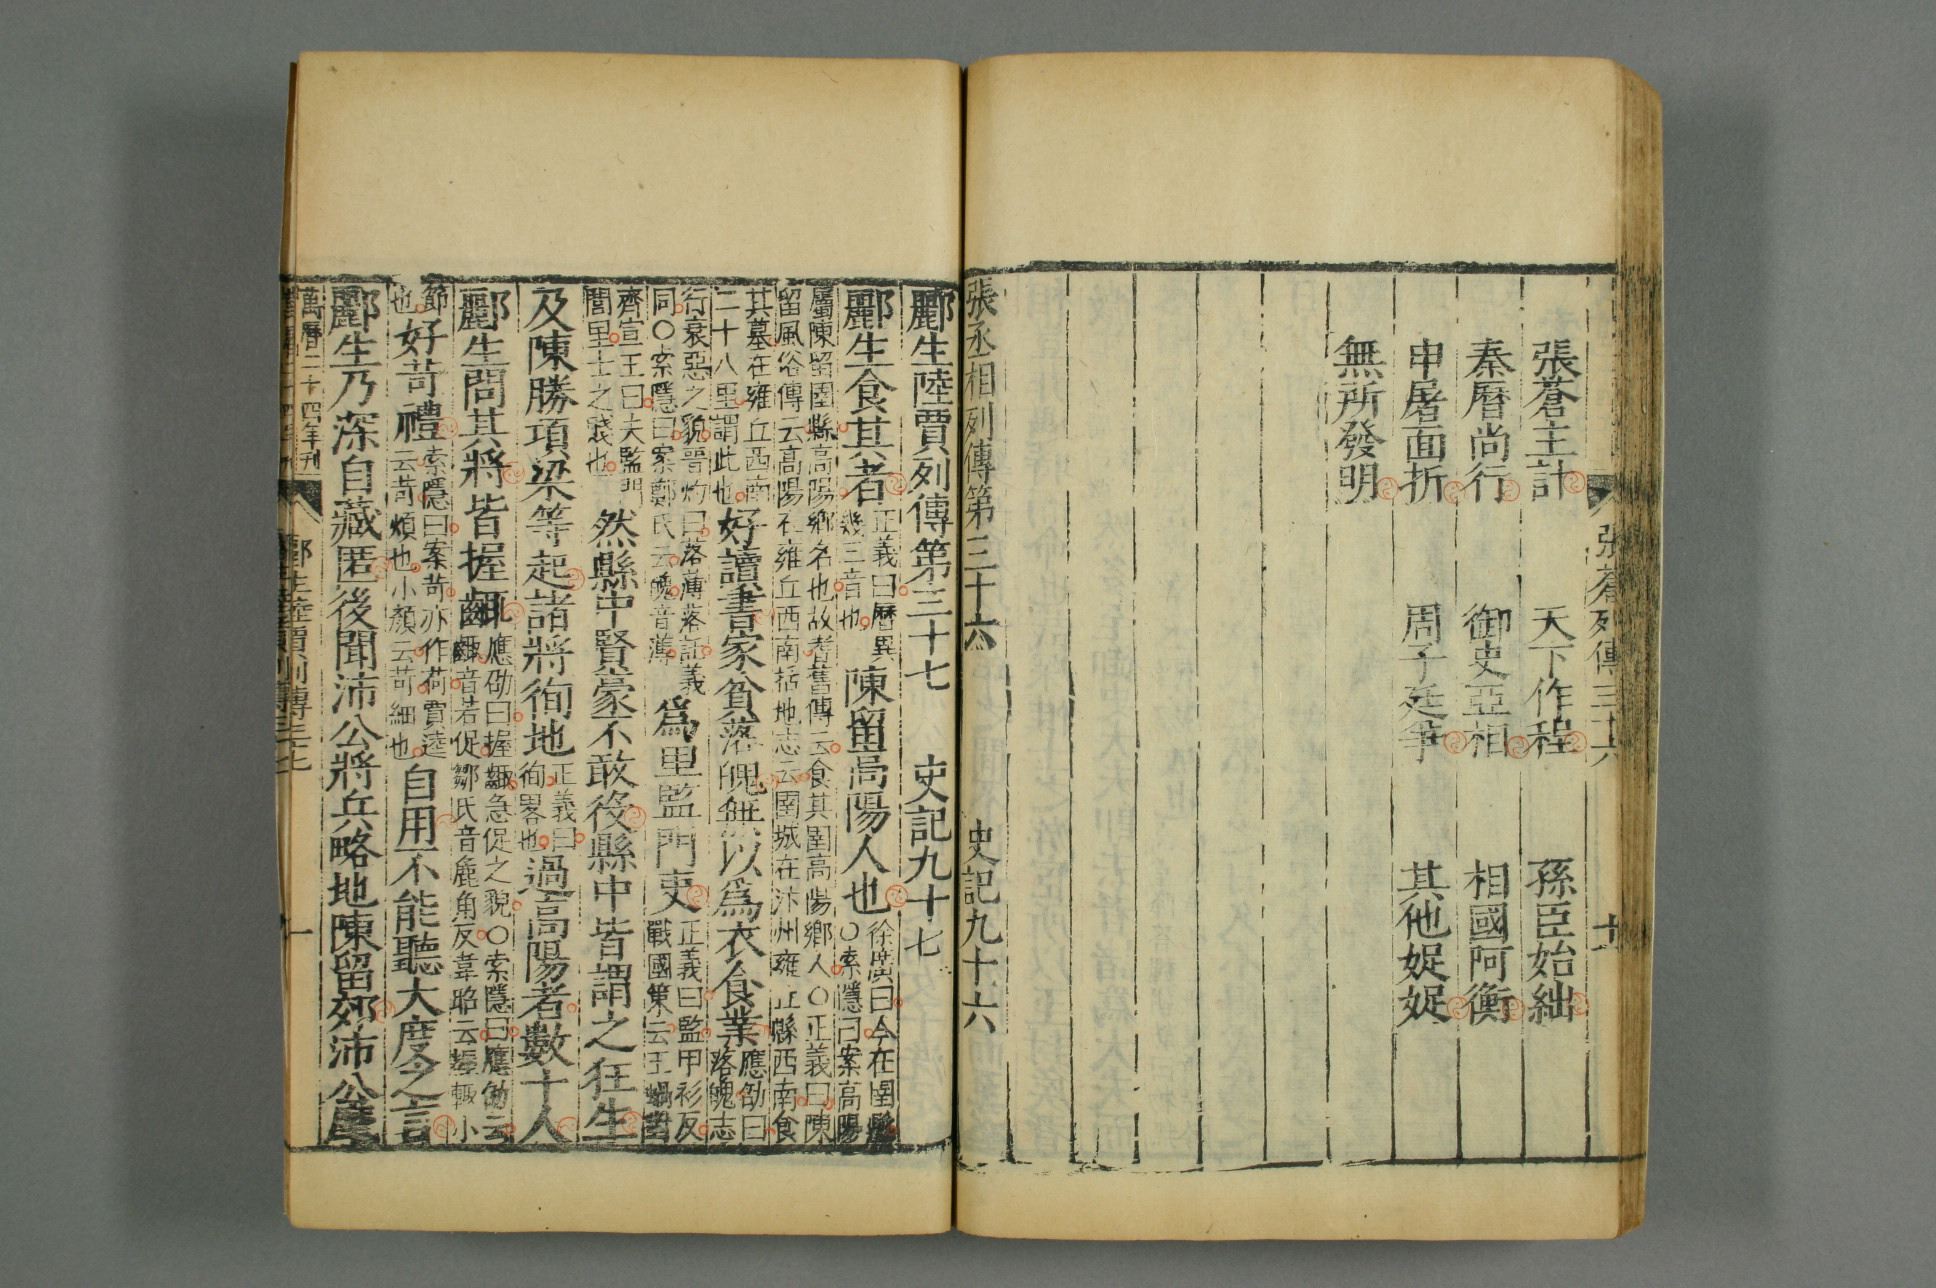 張蒼列傳三十六
十一
張蒼主計 天下作程 孫臣始絀
秦曆尚行 御史亞相 相國阿衡
申屠面折 周子廷爭 其他娖娖
無所發明
張丞相列傳第三十六 史記九十六
酈生陸賈列傳第三十七 史記九十七
酈生食其者 正義曰曆異
幾三音也 陳留高陽人也 徐廣曰今在圉縣
○索隱曰案高陽
屬陳留圉縣高陽鄉名也故耆舊傳云食其圉高陽鄉人○正義曰陳
留風俗傳云高陽在雍丘西南括地志云圉城在汴州雍丘縣西南食
其墓在雍丘西南
二十八里謂此也 好讀書家貧落魄無以爲衣食業 應劭曰
落魄志
行衰惡之貌晉灼曰落薄落託義
同○索隱曰案鄭氏云魄音薄 爲里監門吏 正義曰監甲衫反
戰國策云王蠋對
齊宣王曰夫監門
閭里士之賤也 然縣中賢豪不敢役縣中皆謂之狂生
及陳勝項梁等起諸將徇地 正義曰
徇畧也 過高陽者數十人
酈生問其將皆握齱 應劭曰握齱急促之貌○索隱曰應劭云
齱音若促鄒氏音麄角反韋昭云握齱小
節
也 好苛禮 索隱曰案苛亦作荷賈逵
云苛煩也小顏云苛細也 自用不能聽大度之言
酈生乃深自藏匿後聞沛公將兵略地陳留郊沛公
萬曆二十四年刊
酈生陸賈列傳三十七
一